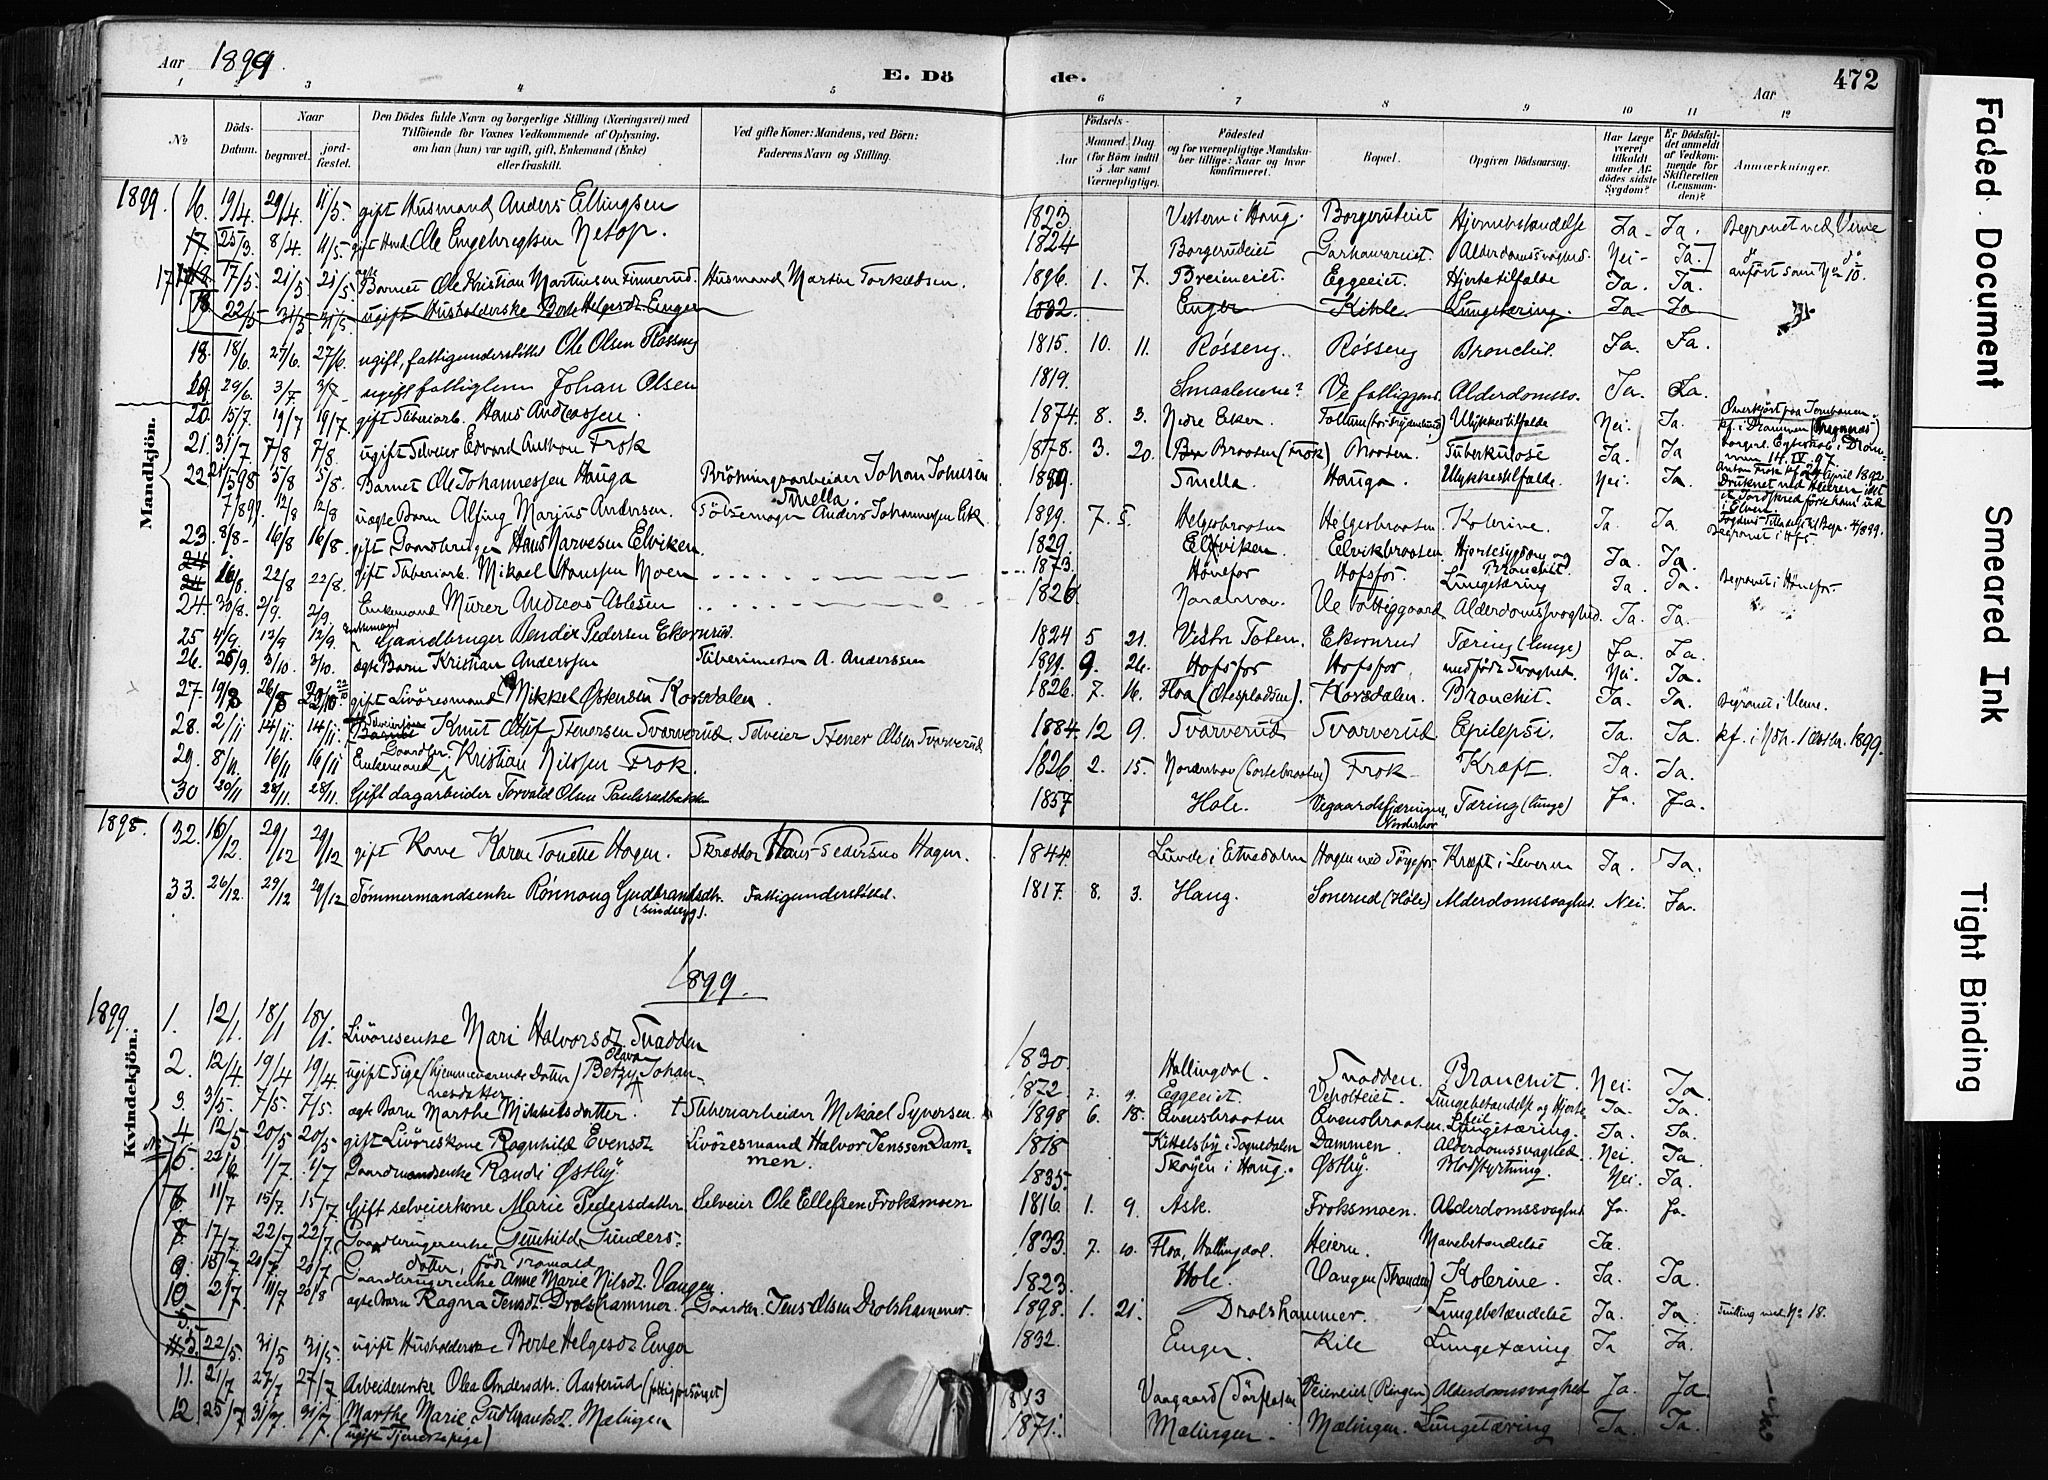 Aar 1899. E. Dö de. Aar 472
1 2 3 4 5 6 7 8 9 10 11 12
No Döds-Datum. Naar begravet. jord-fæstet. Den Dödes fulde Navn og borgerlige Stilling (Næringsvei) med Tilföiende for Voxnes Vedkommende af Oplysning, om han (hun) var ugift, gift, Enkemand (Enke) eller fraskilt. Ved gifte Koner: Mandens, ved Börn: Faderens Navn og Stilling. Födsels- Aar Maaned. Dag (for Börn indtil 5 Aar samt Værnepligtige). Födested og for værnepligtige Mandskaber tillige: Naar og hvor konfirmeret. Bopæl. Opgiven Dödsaarsag. Har Læge været tilkaldt under Afdödes sidste Sygdom? Er Dödsfaldet anmeldt af Vedkommende for Skifteretten (Lensmanden)? Anmærkninger.
1899. 16. 19/4. 29/4. 11/5. gift Husmand Anders Ellingsen 1823. Vestern i Haug. Borgerudeiet Hjernebetændelse Ja Ja. Begravet ved Veme
17 25/3. 8/4. 11/5. gift Hmd Ole Engebregtsen Netop. 1824 Borgerudeiet Alderdomssvaghed. Nei Ja. anført som No 10.
17 17/5. 21/5 21/5. Barnet Ole Kristian Martinsen Finnerud. Husmand Martin Torkildsen. 1896. 1. 7. Breieneiet. Eggeeiet. Hjertetilfælde Ja. Ja.
18. 22/5 31/5 31/5 ugift Husholderske Berte Helgesdt. Enger 1832. Enger Kihle Lungetæring. Ja Ja
18. 18/6. 27/6. 27/6. ugift, fattigunderstöttet Ole Olsen Rösseng 1815. 10. 11. Rösseng. Rösseng Bronchit. Ja. Ja.
19 29/6. 3/7. 3/7 ugift fattiglem Johan Olsen 1819. Smaalenene? Ve fattiggaard Alderdomssv. Ja. Ja.
Mandkjön.
20. 15/7. 19/7 19/7. gift Sliberiarb. Hans Andreassen. 1874. 8. 3. Nedre Eker. Ulykkestilfælde Nei. Ja. Overkjört paa Jernbanen. kf. i Drammen (Bragernæs)
21. 31/7 7/8 7/8. ugift Selveier Edvard Anthon Frok 1878. 3. 20. Braaten (Frok) Braaten. Tuberkulose Ja. Ja
22. 5/8 5/8. Barnet Ole Johannessen Hauga Brötningsarbeider Johan Johnsen Smella. Smella. Hauga. Ulykkestilfælde. Nei. Ja.
7/8 99. 12/8 12/8 uægte Barn Alfing Marius Andersen. Anders Johannessen Eik. 1899. 7. Helgesbraaten Helgesbraaten. Kolerine. Ja. Ja.
23. 8/8 16/8 16/8. gift Gaardbruger Hans Narvesen Elviken. 1829. Elviken. Elvikbraaten. Hjertesygdom og Bronchit. Ja. Ja.
24 16/8. 22/8 22/8. gift Sliberiarb. Mikael Hanssen Moen 1873. Hönefos Hofsfos. Lungetæring Ja. Ja. Begravet i Hönefos.
24. 30/8. 2/9. 2/9. Enkemand Murer Andreas Aslesen 1826 Norderhov. Ve Fattiggaard Alderdomssvaghed. Ja. Ja.
25 4/9. 12/9 12/9. Enkemand Gaardbruger Bendix Pedersen Ekornrud. 1824 5 21. Vestre Toten. Ekornrud Tæring (Lunge) Ja. Ja.
26. 26/9. 3/10. 3/10. ægte Barn Kristian Anderssen Slibermester A. Anderssen 1899. 9. 26. Hofsfos Hofsfos medfödt Svaghed. Nei. Ja.
27. 26/8 gift Livöresmand Mikkel Östensen Korsdalen. 1826. 7. 16. Floa (Ötespladsen). Korsdalen. Bronchit. Ja. Ja. Begravet i Veme.
28. 2/11 14/11 14/11. Selveiersön Knut Olaf Stenersen Svarverud. Selveier Stener Olsen Svarverud 1884. 12 9. Svarverud Svarverud Epilepsi. Ja. Ja. kf. i Ndh. 1 Oktbr. 1899.
29. 8/11. 16/11 16/11 Enkemand Gaardbr. Kristian Nilssen Frok. 1826. 2. 15. Norderhov (Bortebraaten) Frok Kræft. Ja. Ja.
30 20/11 28/11. 28/11. Gift dagarbeider Torvald Olsen Paulsrudbakk. 1857 Hole. Vegaardsfjæringen, Norderhov Tæring (lunge) Ja. Ja.
1898. 32. 16/12. 29/12 29/12 gift Kone Karen Tonette Hagen. Skrædder Hans Pedersens Hagen. 1844. Lunde i Etnedalen Kræft i Leveren Ja. Ja.
33. 26/12. 29/12 29/12 Tömmermandsenke Rönnaug Gudbrandsdtr. Fattigunderstöttet. 1817. 8. 3. Haug. Sonerud (Hole) Alderdomssvaghed. Nei. Ja.
1899.
1899. Kvindekjön.
1. 12/1 18/1 18/1. Livöresenke Mari Halvorsdt. Svadden 1830. Hallingdal. Svadden. Bronchit. Nei. Ja
2. 12/4. 19/4 19/4. ugift Pige (hjemmeværende Datter) Betzy Olava Johannesdatter 1872. 7. 9. Eggeeiet. Veholteiet. Lungebetændelse og Hjerte Ja. Ja.
3. 3/5. 7/5. 7/5. ægte Barn Marthe Mikkelsdatter. Sliberiarbeider Mikael Syversen. 1898 6. 18. Evensbraaten Evensbraaten. Lungetæring. Ja. Ja.
4. 12/5 20/5 20/5. gift Livöreskone Ragnhild Evensdt. Livöresmand Halvor Jenssen Dammen. 1818 Kittelsby i Sognedalen Dammen. Alderdomssvaghed. Nei. Ja
5. 22/6 1/7. 1/7 Gaardmandsenke Randi Östby. 1835. Skoyen i Haug. Östby. Blodstyrtning. Nei. Ja.
11/7 15/7. 15/7 Gift selveierkone Marie Pedersdatter Selveier Ole Ellefsen Froksmoen 1816. 1. 9. Ask. Froksmoen. Alderdomssvaghed Ja. Ja.
17/7 22/7 22/7. Gaardbrugerenke Gunhild Gundersdatter, född Tramald 1833. 7. 10. Floa, Hallingdal. Heiern. Mavebetændelse Ja.
9. 15/7 20/7 20/7 Gaardbrugerenke Anne Marie Nilsdt. Vangen. 1823. Hole. Vangen (Stranden) Kolerine. Ja. Ja.
10. 2/7 11/7 20/8 ægte Barn Ragna Jensdt. Drolshammer. Gaardbr. Jens Olsen Drolshammer. 1898. 1. 21. Drolshammer. Lungebetændelse Ja. Ja. Tvilling med No 18.
5. 22/5. 31/5 31/5. ugift Husholderske Berte Helgesdt Enger 1832. Enger. Kile Lungetæring Ja Ja.
11. 21/7 27/7 27/7 Arbeiderenke Olea Andersdtr. Aasterud (fattigforsörget) 1813 Vaagaard Veieneiet (Ringen) Alderdomssvaghed Ja. Ja
12 25/7 31/7. 31/7. Marthe Marie Gudbrandsdt. Mælingen (ugift Tjenestepige) 1871. Mælingen. Mælingen. Lungetæring Ja. Ja.
Faded Document
Smeared Ink
Tight Binding